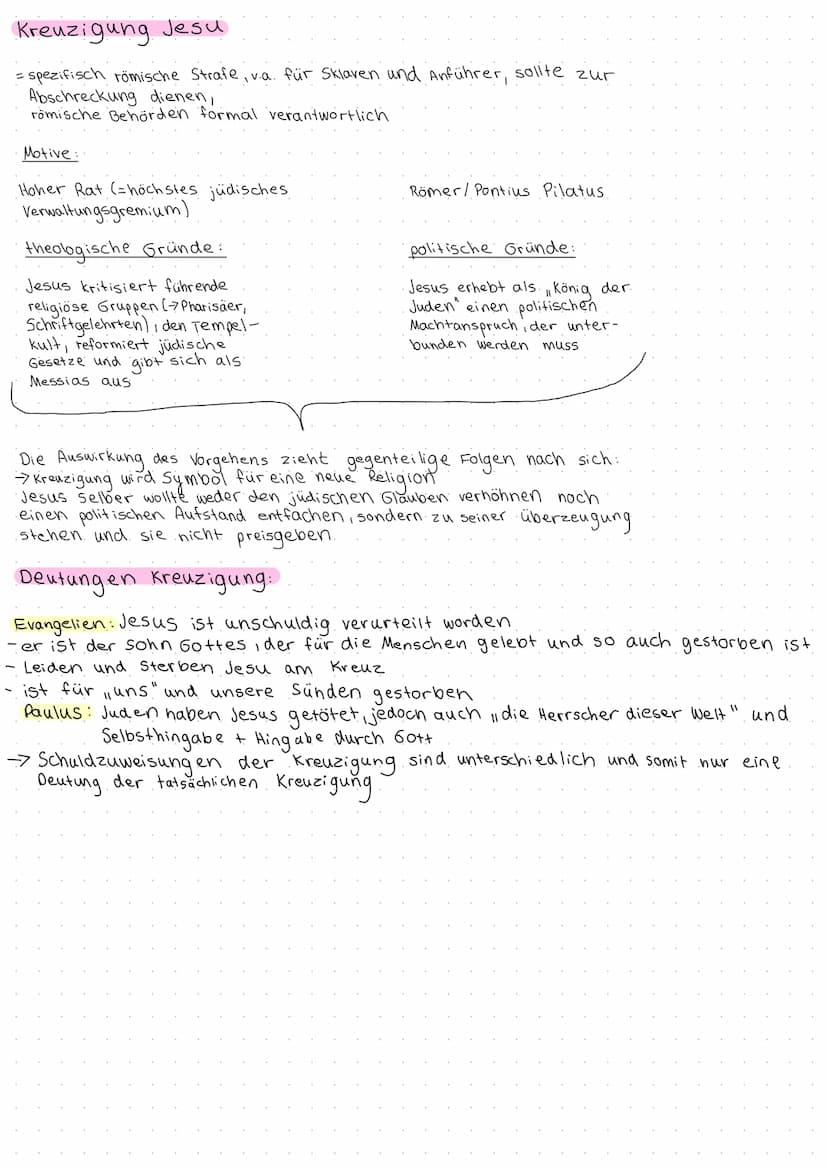 Kreuzigung Jesu
= spezifisch römische Strafe, v.a. für Sklaven und Anführer, sollte zur
Abschreckung dienen,
römische Behörden formal verantwortlich
Motive:
Hoher Rat (=höchstes jüdisches
Verwaltungsgremium)
theologische Gründe:
Jesus kritisiert führende
religiöse Gruppen (→ Pharisäer,
Schriftgelehrten), den Tempel-
kult, reformiert jüdische
Gesetze und gibt sich als
Messias aus
Römer/ Pontius Pilatus
politische Gründe:
Jesus erhebt als „König der
Juden" einen politischen
Machtanspruch, der unter-
bunden werden muss
Die Auswirkung des Vorgehens zieht gegenteilige Folgen nach sich:
→ Kreuzigung wird Symbol für eine neue Religion
Jesus selber wollte weder den jüdischen Glauben verhöhnen noch
einen politischen Aufstand entfachen, sondern zu seiner Überzeugung
stehen und sie nicht preisgeben.
Deutungen Kreuzigung:
Evangelien: Jesus ist unschuldig verurteilt worden
- er ist der Sohn Gottes, der für die Menschen gelebt und so auch gestorben ist
- Leiden und Sterben Jesu am Kreuz
- ist für „uns" und unsere Sünden gestorben
Paulus: Juden haben Jesus getötet, jedoch auch „die Herrscher dieser Welt" und
Selbsthingabe + Hingabe durch Gott
→ Schuldzuweisungen der Kreuzigung sind unterschiedlich und somit nur eine
Deutung der tatsächlichen Kreuzigung